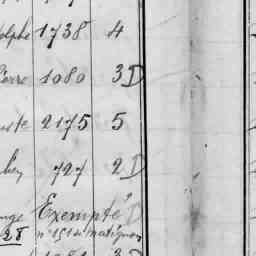 olphe 1738 4
ierre 1080 3 D
uste 2175 5
727 2 D
Exempté D
28 n° 151 de matignon
3 D